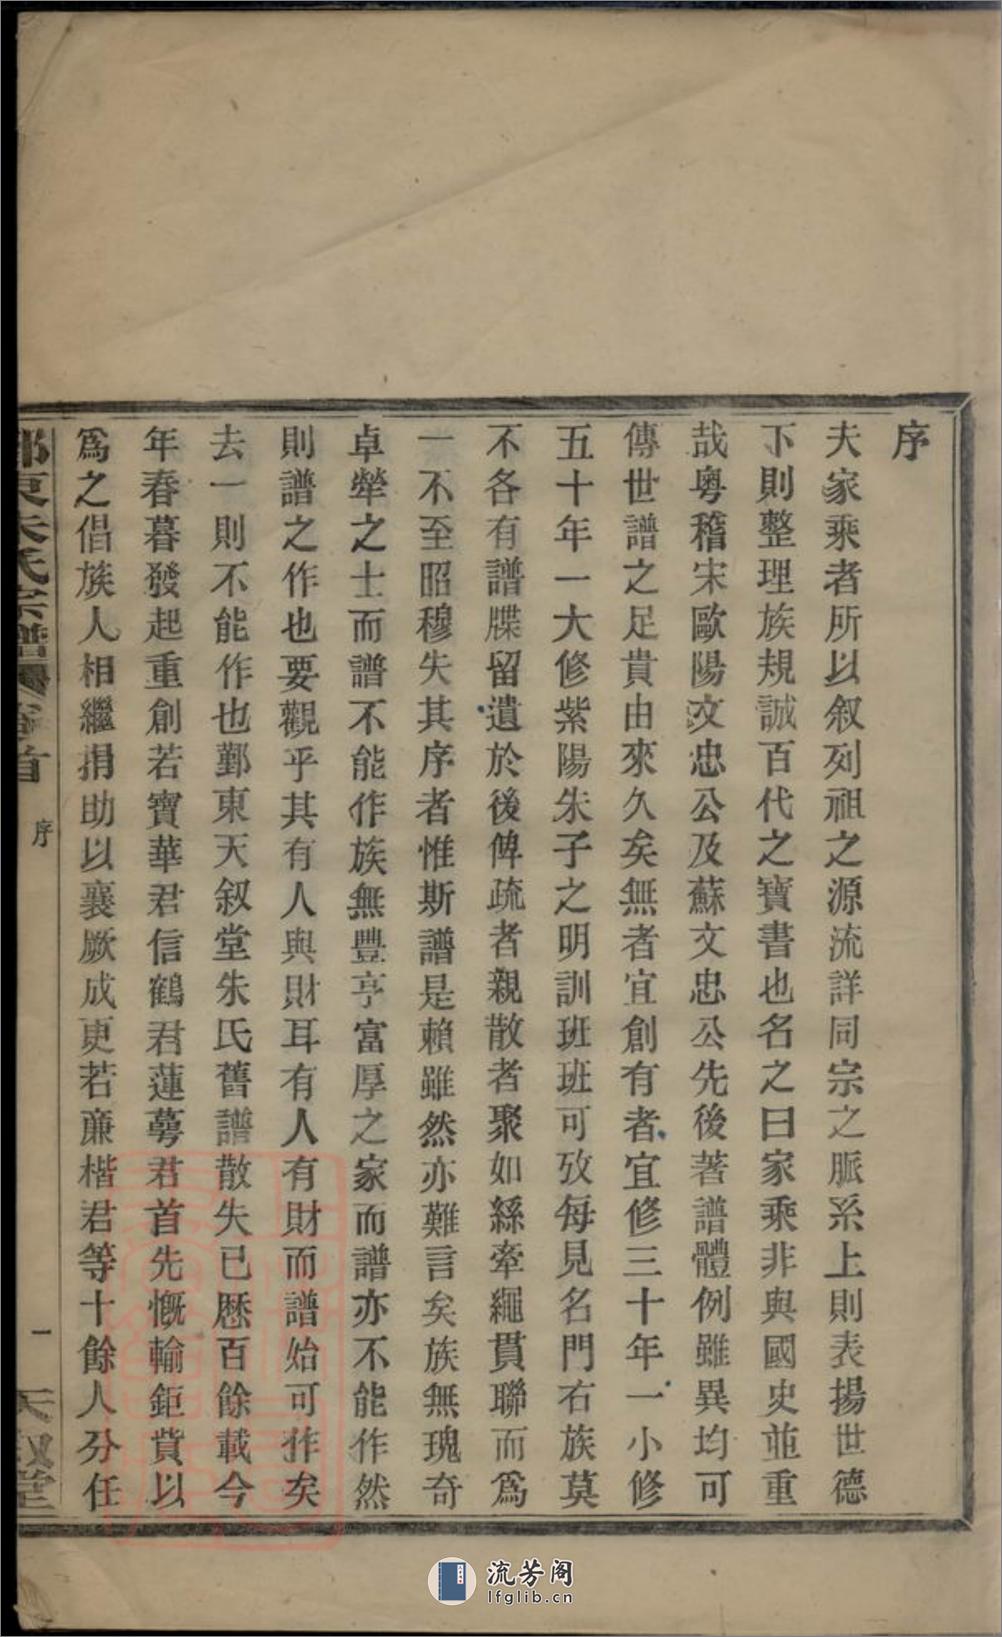 序
夫家乘者所以叙列祖之源流詳同宗之脈系上則表揚世德
下則整理族規誠百代之寶書也名之曰家乘非與國史並重
哉粵稽宋歐陽文忠公及蘇文忠公先後著譜體例雖異均可
傳世譜之足貴由來久矣無者宜創有者宜修三十年一小修
五十年一大修紫陽朱子之明訓班班可攷每見名門右族莫
不各有譜牒留遺於後俾疏者親散者聚如絲牽繩貫聯而爲
一不至昭穆失其序者惟斯譜是賴雖然亦難言矣族無瑰奇
卓犖之士而譜不能作族無豐亨富厚之家而譜亦不能作然
則譜之作也要觀乎其有人與財耳有人有財而譜始可作矣
去一則不能作也鄞東天叙堂朱氏舊譜散失已歷百餘載今
年春暮發起重創若寶華君信鶴君蓮蕚君首先慨輸鉅貲以
爲之倡族人相繼捐助以襄厥成更若廉楷君等十餘人分任
鄞東朱氏宗譜 卷首 序 一 天叙堂
流芳阁
lfglib.cn